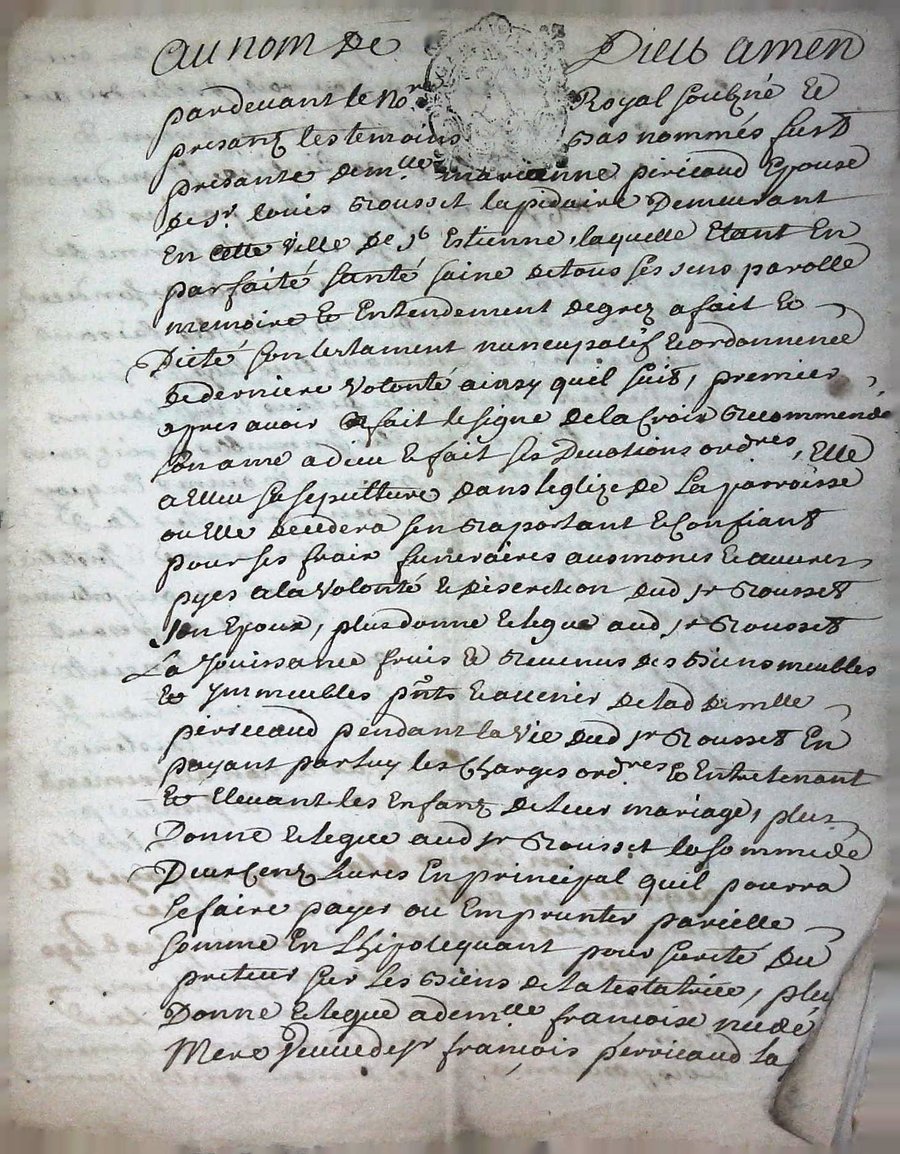 Au nom de Dieu amen
pardevant le nore Royal soubzné &
presantz les temoins bas nommés fust
présante demlle marianne pericaud Epouse
de sr. louis Rousset lapidaire Demeurant
En cette ville de st Estienne, laquelle Etant En
parfaite santé saine de tous ses sens parolle
memoire & Entendement de grez a fait &
Dicté son testament nuncupatif & ordonnence
de derniere Volonté ainsy quil suit, premier
apres avoir fait le signe de la Croix Recommendé
son ame a dieu & fait ses Devotions ordres, Elle
a Elleu sa sepulture dans leglize de La parroisse
ou Elle decedera sen Raportant & Confiant
pour ses fraix funeraires aumones & œuvres
pyes a la Volonté & discretion dud sr Rousset
son Epoux, plus donne & legue aud sr Rousset
La Jouissance fruis & Revenus des Biens meubles
& Immeubles pnts & avenir de lad demlle
pericaud pendant la Vie dud sr Rousset En
payant par luy les Charges ordres & Entretenant
& Elevant les Enfantz de leur mariage, plus
Donne & legue aud sr Rousset la somme de
Deux Centz Livres En principal quil pourra
se faire payer ou Emprunter pareille
somme En Lhipotequant pour sureté du
preteur sur les Biens de la testatrice, plus
Donne & legue a demlle francoise
Mere Veuve de sr françois perricaud La